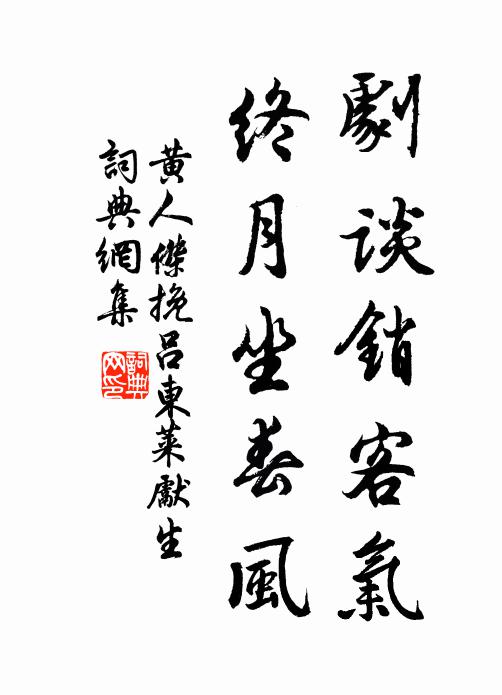 劇談銷客氣
終月坐春風
黃人傑挽呂東萊獻生
詞典網集
詞典網印